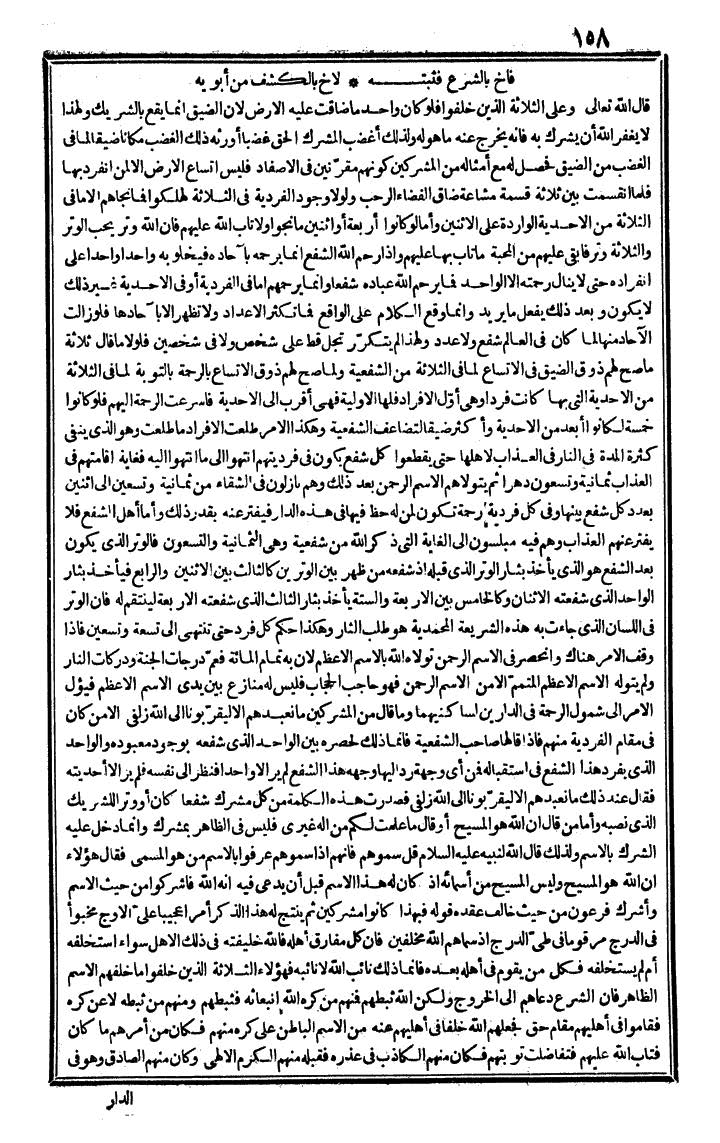 ١٥٨
فاخ بالشرع فثبته * لاخ بالكشف من أبويه
قال الله تعالى وعلى الثلاثة الذين خلفوا فلو كان واحد ما ضاقت عليه الارض لان الضيق انما يقع بالشريك ولهذا
لا يغفر الله أن يشرك به فانه يخرج عنه ما هو له ولذلك أغضب المشرك الحق غضبا أورثه ذلك الغضب مكانا ضيقا لما فى
الغضب من الضيق فحصل له مع أمثاله من المشركين كونهم مقرنين فى الاصفاد فليس اتساع الارض الا لمن انفرد بها
فلما انقسمت بين ثلاثة قسمة مشاعة ضاق الفضاء الرحب ولولا وجود الفردية فى الثلاثة لهلكوا فما نجاهم الا ما فى
الثلاثة من الاحدية الواردة على الاثنين وأما لو كانوا أربعة أو اثنين ما نجوا ولا تاب الله عليهم فان الله وتر يحب الوتر
والثلاثة وتر فابقى عليهم من المحبة ما تاب بها عليهم واذا رحم الله الشفع انما يرحمه بآحاده فيخلو به واحدا واحدا على
انفراده حتى لا ينال رحمته الا الواحد فما يرحم الله عباده شفعا وانما يرحمهم اما فى الفردية أو فى الاحدية غير ذلك
لا يكون وبعد ذلك يفعل ما يريد وانما وقع الكلام على الواقع فما تكثر الاعداد ولا تظهر الا بآحادها فلو زالت
الآحاد منها لما كان فى العالم شفع ولا عدد ولهذا لم يتكرر تجل قط على شخص ولا فى شخصين فلولا ما قال ثلاثة
ما صح لهم ذوق الضيق فى الاتساع لما فى الثلاثة من الشفعية ولما صح لهم ذوق الاتساع بالرحمة بالتوبة لما فى الثلاثة
من الاحدية التى بها كانت فردا وهى أوّل الافراد فلها الاولية فهى أقرب الى الاحدية فاسرعت الرحمة اليهم فلو كانوا
خمسة لكانوا أبعد من الاحدية وأكثر ضيقا لتضاعف الشفعية وهكذا الامر طلعت الافراد ما طلعت وهو الذى ينفى
كثرة المدة فى النار فى العذاب لاهلها حتى يقطعوا كل شفع يكون فى فرديتهم انتهوا الى ما انتهوا اليه فغاية اقامتهم فى
العذاب ثمانية وتسعون دهرا ثم يتولاهم الاسم الرحمن بعد ذلك وهم نازلون فى الشقاء من ثمانية وتسعين الى اثنين
بعدد كل شفع بينها وفى كل فردية رحمة تكون لمن له حظ فيها فى هذه الدار فيفتر عنه بقدر ذلك وأما أهل الشفع فلا
يفتر عنهم العذاب وهم فيه مبلسون الى الغاية التى ذكر الله من شفعية وهى الثمانية والتسعون فالوتر الذى يكون
بعد الشفع هو الذى يأخذ بثار الوتر الذى قبله اذ شفعه من ظهر بين الوترين كالثالث بين الاثنين والرابع فيأخذ بثار
الواحد الذى شفعته الاثنان وكالخامس بين الاربعة والستة يأخذ بثار الثالث الذى شفعته الاربعة لينتقم له فان الوتر
فى اللسان الذى جاءت به هذه الشريعة المحمدية هو طلب الثار وهكذا حكم كل فرد حتى تنتهى الى تسعة وتسعين فاذا
وقف الامر هناك وانحصر فى الاسم الرحمن تولاه الله بالاسم الاعظم لان به تمام المائة فعم درجات الجنة ودركات النار
ولم يتوله الاسم الاعظم المتمم الا من الاسم الرحمن فهو حاجب الحجاب فليس له منازع بين يدى الاسم الاعظم فيؤل
الامر الى شمول الرحمة فى الدارين لساكنيهما وما قال من المشركين ما نعبدهم الا ليقربونا الى الله زلفى الا من كان
فى مقام الفردية منهم فاذا قالها صاحب الشفعية فانما ذلك لحصره بين الواحد الذى شفعه بوجود معبوده والواحد
الذى يفرد هذا الشفع فى استقباله فمن أى وجهة رد اليها وجهه هذا الشفع لم ير الا واحدا فنظر الى نفسه فلم ير الا أحديته
فقال عند ذلك ما نعبدهم الا ليقربونا الى الله زلفى فصدرت هذه الكلمة من كل مشرك شفعا كان أو وترا للشريك
الذى نصبه وأما من قال ان الله هو المسيح أو قال ما علمت لكم من اله غيرى فليس فى الظاهر بمشرك وانما دخل عليه
الشرك بالاسم ولذلك قال الله لنبيه عليه السلام قل سموهم فانهم اذا سموهم عرفوا بالاسم من هو المسمى فقال هؤلاء
ان الله هو المسيح وليس المسيح من أسمائه اذ كان له هذا الاسم قبل أن يدعى فيه انه الله فاشركوا من حيث الاسم
وأشرك فرعون من حيث خالف عقده قوله فبهذا كانوا مشركين ثم ينتج له هذا الذكر أمرا عجيبا على الاوج مخبوأ
فى الدرج مرقوما فى طى الدرج اذ سماهم الله مخلفين فان كل مفارق أهله فالله خليفته فى ذلك الاهل سواء استخلفه
أم لم يستخلفه فكل من يقوم فى أهله بعده فانما ذلك نائب الله لا نائبه فهؤلاء الثلاثة الذين خلفوا ما خلفهم الاسم
الظاهر فان الشرع دعاهم الى الخروج ولكن الله ثبطهم فنهم من كره الله انبعاثه فثبطهم ومنهم من ثبطه لا عن كره
فقاموا فى أهليهم مقام حق فجعلهم الله خلفا فى أهليهم عنه من الاسم الباطن على كره منهم فكان من أمرهم ما كان
فتاب الله عليهم فتفاضلت توبتهم فكان منهم الكاذب فى عذره فقبله منهم الكرم الالهى وكان منهم الصادق وهو فى
الدار